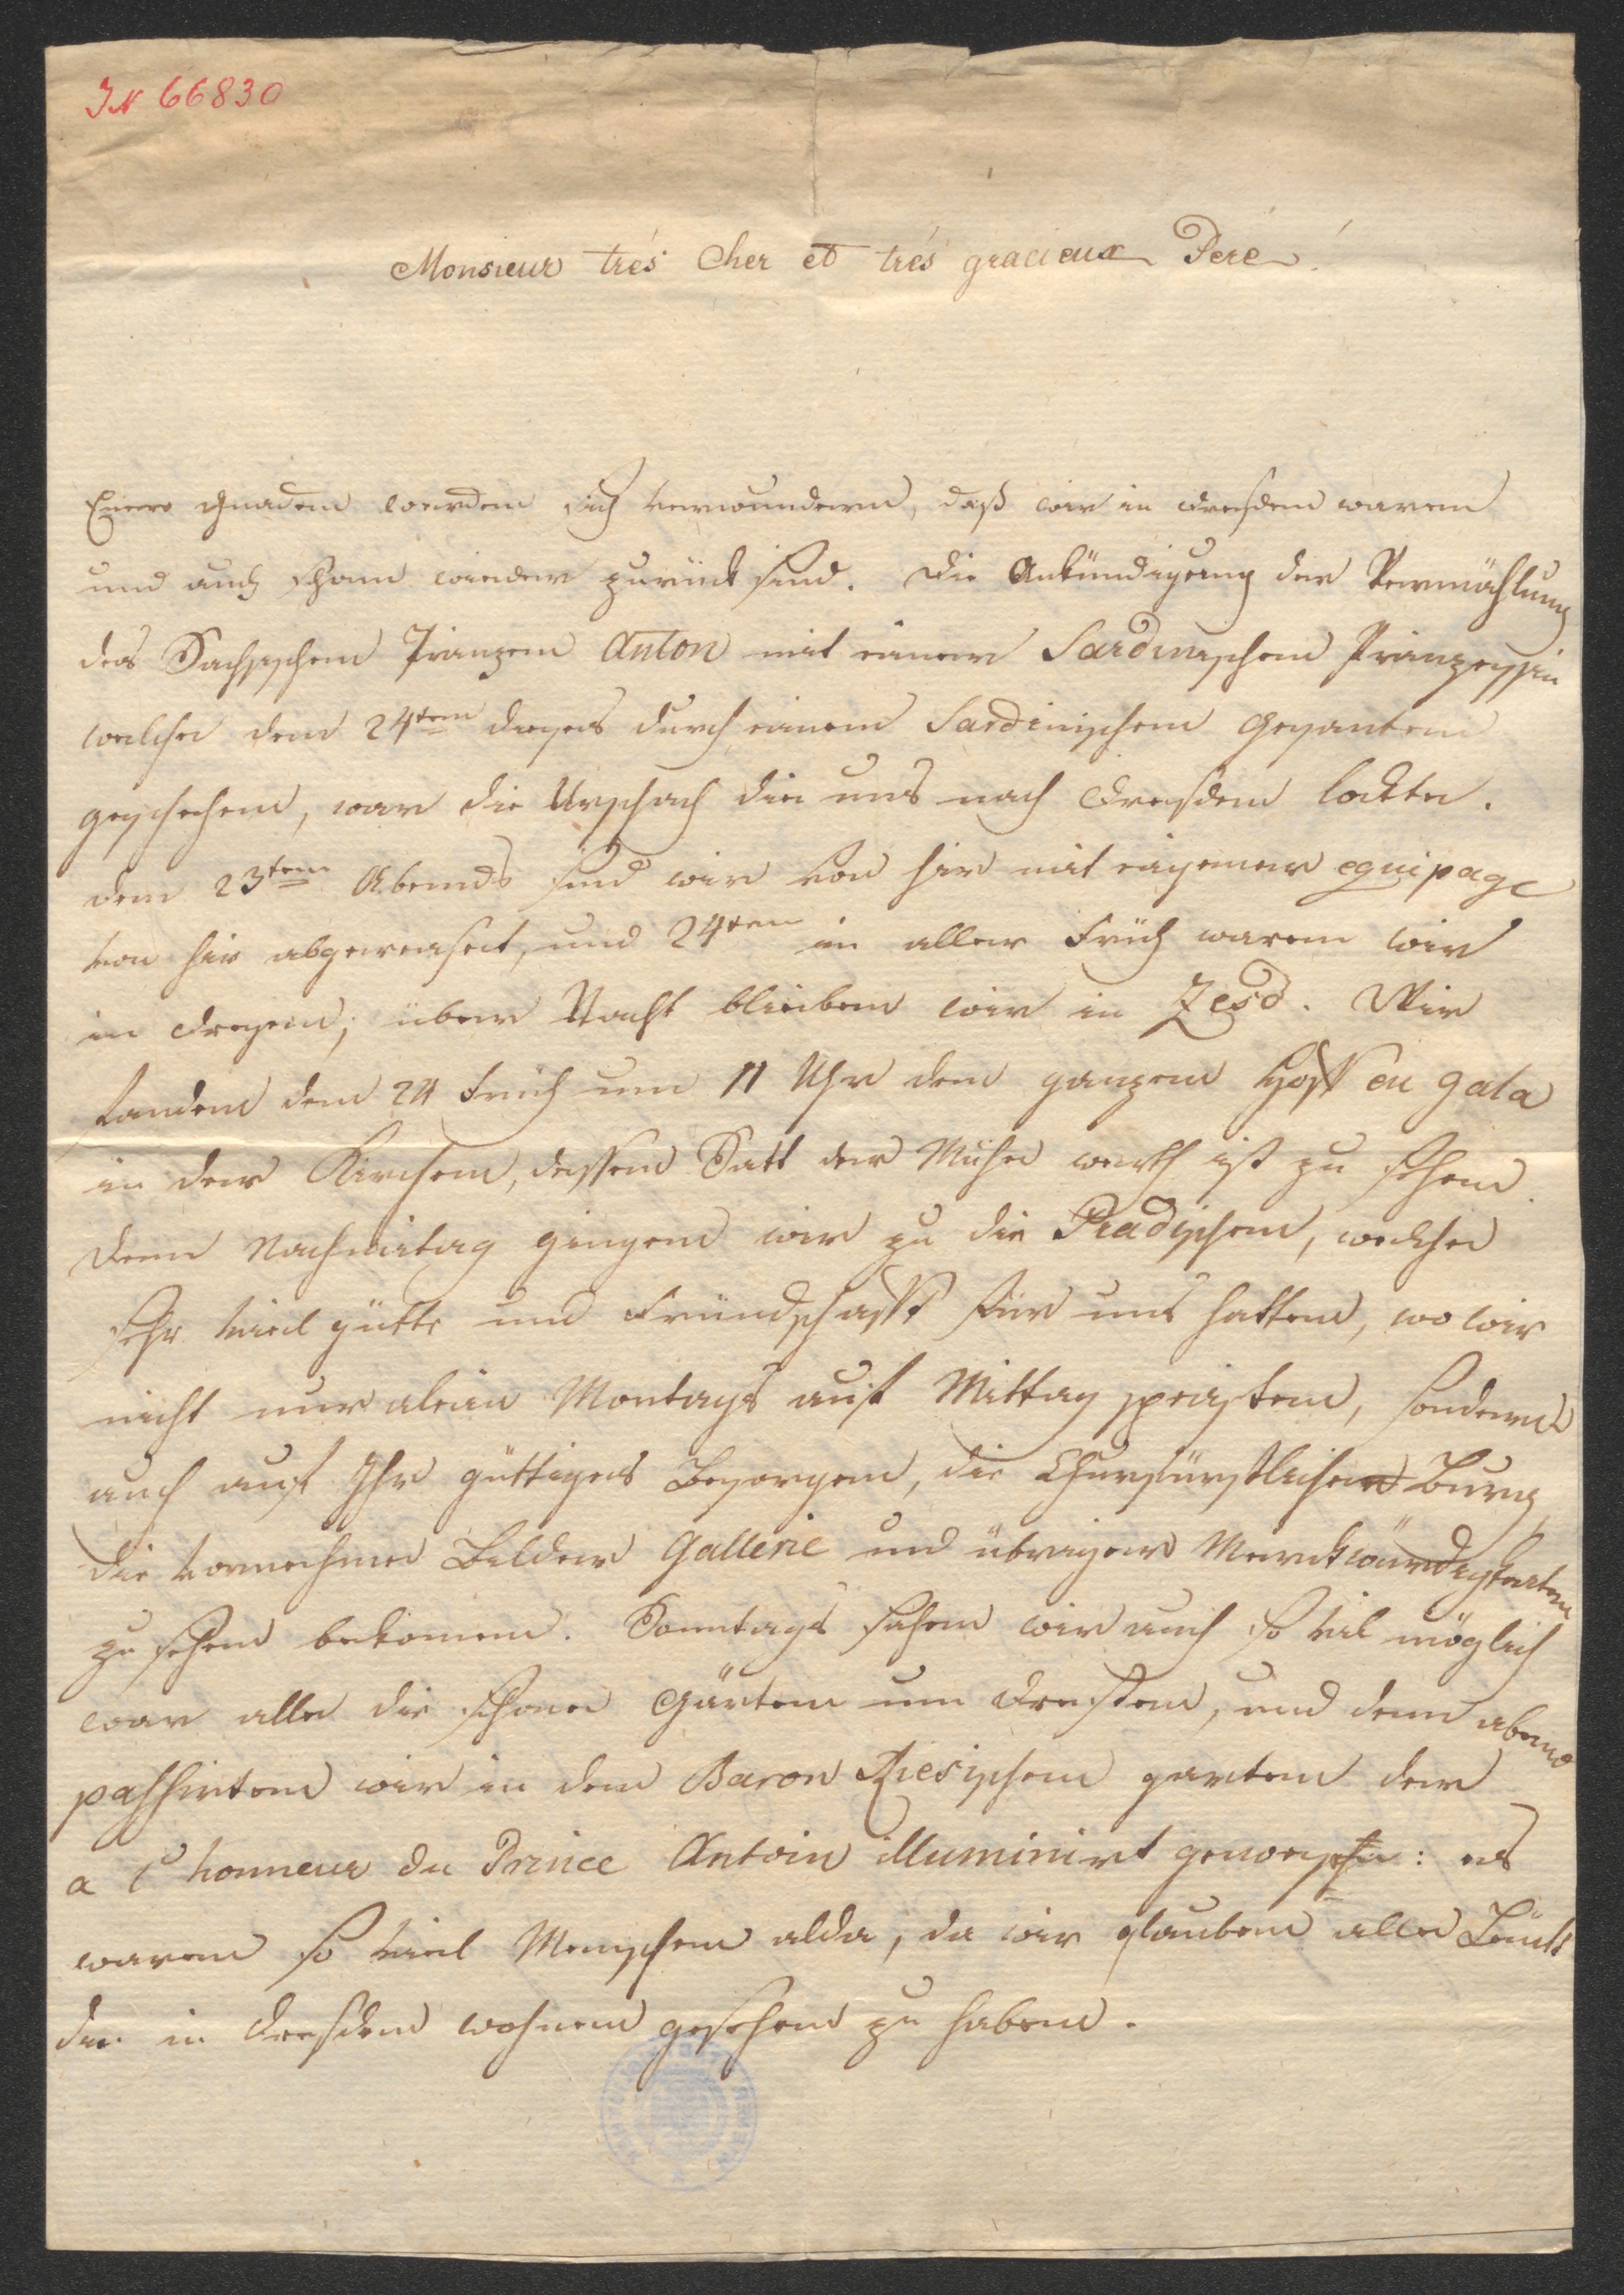 IN 66830
Monsieur trés Cher et trés gracieux Pere!
Euer Gnaden werden sich verwundern, daß wir in Dresden waren
und auch schon wieder zurück sind. Die Ankündigung der Vermählung
des Sachsischen Prinzen Anton mit einer Sardinischen Prinzessin
welche den 24ten dieses durch einen Sardinischen Gesanten
geschehen, war die Urschach die uns nach Dresden lockte.
den 23ten Abends sind wir von hir mit eigener equipage
von hir abgereiset, und 24ten in aller Früh waren wir
in Dresden; über Nacht blieben wir in . Wir
fanden den 24 Früh um 11 Uhr den ganzen Hoff en gala
in der Kirchen, dessen Statt der Mühe werth ist zu sehen.
Denn Nachmitag gingen wir zu die , welche
sehr viel gütte und Freundschafft für uns hatten, wo wir
nicht nur alein Montags auf Mittag speisten, sondern
auch auf Ihr güttiges Besorgen, die Churfürstlichen Burg
die vornehme Bilder Gallerie und übrigen Merckwürdigkeiten
zu sehen bekomen. Sonntags sahen wir auch so vil möglich
war alle die schöne Gärten um Dresden, und denn abend
passirten wir in den Baron garten der
a l'honneur du Prince Antoin illuminirt gewesen: es
waren so viel Menschen alda, da wir glauben alle Leüte
die in Dresden wohnen gesehen zu haben.